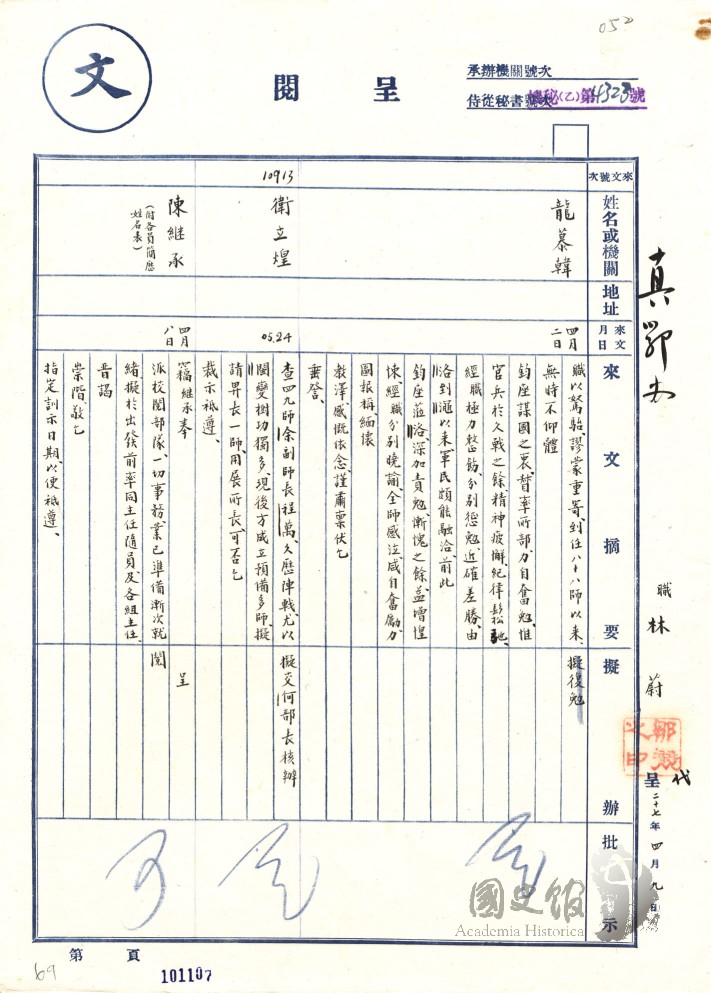 052
文
呈閱
承辦機關號次
侍從秘書號次
機秘(乙)第4323號
來文號次
姓名或機關
地址
來文月日
來文摘要
擬辦
批示
龍慕韓
四月二日
職以駑駘、謬蒙重寄、到任八十八師以來、
無時不仰體
鈞座謀國之衷、督率所部、力自奮勉、惟
官兵於久戰之餘、精神疲懈、紀律鬆馳、
經職極力整飭、分別懲勉、近確差勝、由
洛到澠以來、軍民頗能融洽、前此
鈞座蒞洛、深加責勉、慚愧之餘、益增惶
悚、經職分別曉諭全師、感泣咸自奮勵、力
圖報稱、緬懷
教澤、感慨依念、謹肅稟、伏乞
垂詧、
擬復勉
10913
衛立煌
05.24
查四九師余副師長程萬、久歷陣戰、尤以
閩變樹功獨多、現後方成立預備多師、擬
請昇長一師、用展所長、可否乞
裁示祇遵、
擬交何部長核辦
陳繼承
(附各員簡歷姓名表)
四月八日
竊繼承奉
派校閱部隊、一切事務、業已準備漸次就
緒、擬於出發前率同主任隨員及各組主任、
晉謁
崇階、敬乞
指定訓示日期、以便祇遵、
呈閱
可
職林蔚
鄒競之印
代
呈 二十七年四月九日
第 頁
69
101107
國史館
Academia Historica